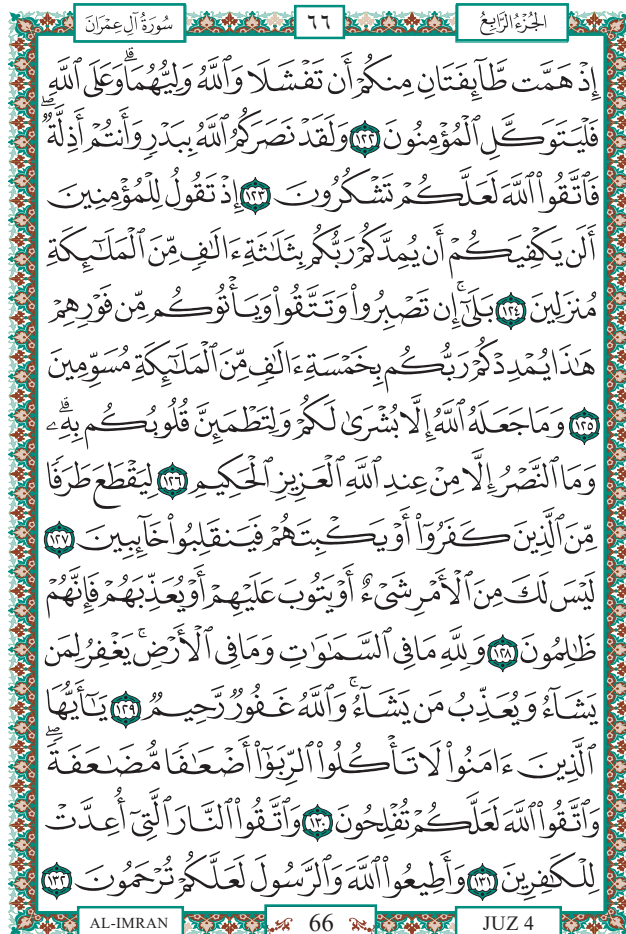 الجُزْءُ الرَّابِعُ ٦٦ سُورَةُ آلِ عِمْرَانَ
إِذْ هَمَّت طَّآئِفَتَانِ مِنكُمْ أَن تَفْشَلَا وَٱللَّهُ وَلِيُّهُمَاۗ وَعَلَى ٱللَّهِ
فَلْيَتَوَكَّلِ ٱلْمُؤْمِنُونَ ١٢٢ وَلَقَدْ نَصَرَكُمُ ٱللَّهُ بِبَدْرٍ وَأَنتُمْ أَذِلَّةٌۖ
فَٱتَّقُوا۟ ٱللَّهَ لَعَلَّكُمْ تَشْكُرُونَ ١٢٣ إِذْ تَقُولُ لِلْمُؤْمِنِينَ
أَلَن يَكْفِيَكُمْ أَن يُمِدَّكُمْ رَبُّكُم بِثَلَٰثَةِ ءَالَٰفٍ مِّنَ ٱلْمَلَٰٓئِكَةِ
مُنزَلِينَ ١٢٤ بَلَىٰٓۚ إِن تَصْبِرُوا۟ وَتَتَّقُوا۟ وَيَأْتُوكُم مِّن فَوْرِهِمْ
هَٰذَا يُمْدِدْكُمْ رَبُّكُم بِخَمْسَةِ ءَالَٰفٍ مِّنَ ٱلْمَلَٰٓئِكَةِ مُسَوِّمِينَ
١٢٥ وَمَا جَعَلَهُ ٱللَّهُ إِلَّا بُشْرَىٰ لَكُمْ وَلِتَطْمَئِنَّ قُلُوبُكُم بِهِۦۗ
وَمَا ٱلنَّصْرُ إِلَّا مِنْ عِندِ ٱللَّهِ ٱلْعَزِيزِ ٱلْحَكِيمِ ١٢٦ لِيَقْطَعَ طَرَفًا
مِّنَ ٱلَّذِينَ كَفَرُوٓا۟ أَوْ يَكْبِتَهُمْ فَيَنقَلِبُوا۟ خَآئِبِينَ ١٢٧
لَيْسَ لَكَ مِنَ ٱلْأَمْرِ شَىْءٌ أَوْ يَتُوبَ عَلَيْهِمْ أَوْ يُعَذِّبَهُمْ فَإِنَّهُمْ
ظَٰلِمُونَ ١٢٨ وَلِلَّهِ مَا فِى ٱلسَّمَٰوَٰتِ وَمَا فِى ٱلْأَرْضِۚ يَغْفِرُ لِمَن
يَشَآءُ وَيُعَذِّبُ مَن يَشَآءُۚ وَٱللَّهُ غَفُورٌ رَّحِيمٌ ١٢٩ يَٰٓأَيُّهَا
ٱلَّذِينَ ءَامَنُوا۟ لَا تَأْكُلُوا۟ ٱلرِّبَوٰٓا۟ أَضْعَٰفًا مُّضَٰعَفَةًۖ
وَٱتَّقُوا۟ ٱللَّهَ لَعَلَّكُمْ تُفْلِحُونَ ١٣٠ وَٱتَّقُوا۟ ٱلنَّارَ ٱلَّتِىٓ أُعِدَّتْ
لِلْكَٰفِرِينَ ١٣١ وَأَطِيعُوا۟ ٱللَّهَ وَٱلرَّسُولَ لَعَلَّكُمْ تُرْحَمُونَ ١٣٢
AL-IMRAN 66 JUZ 4